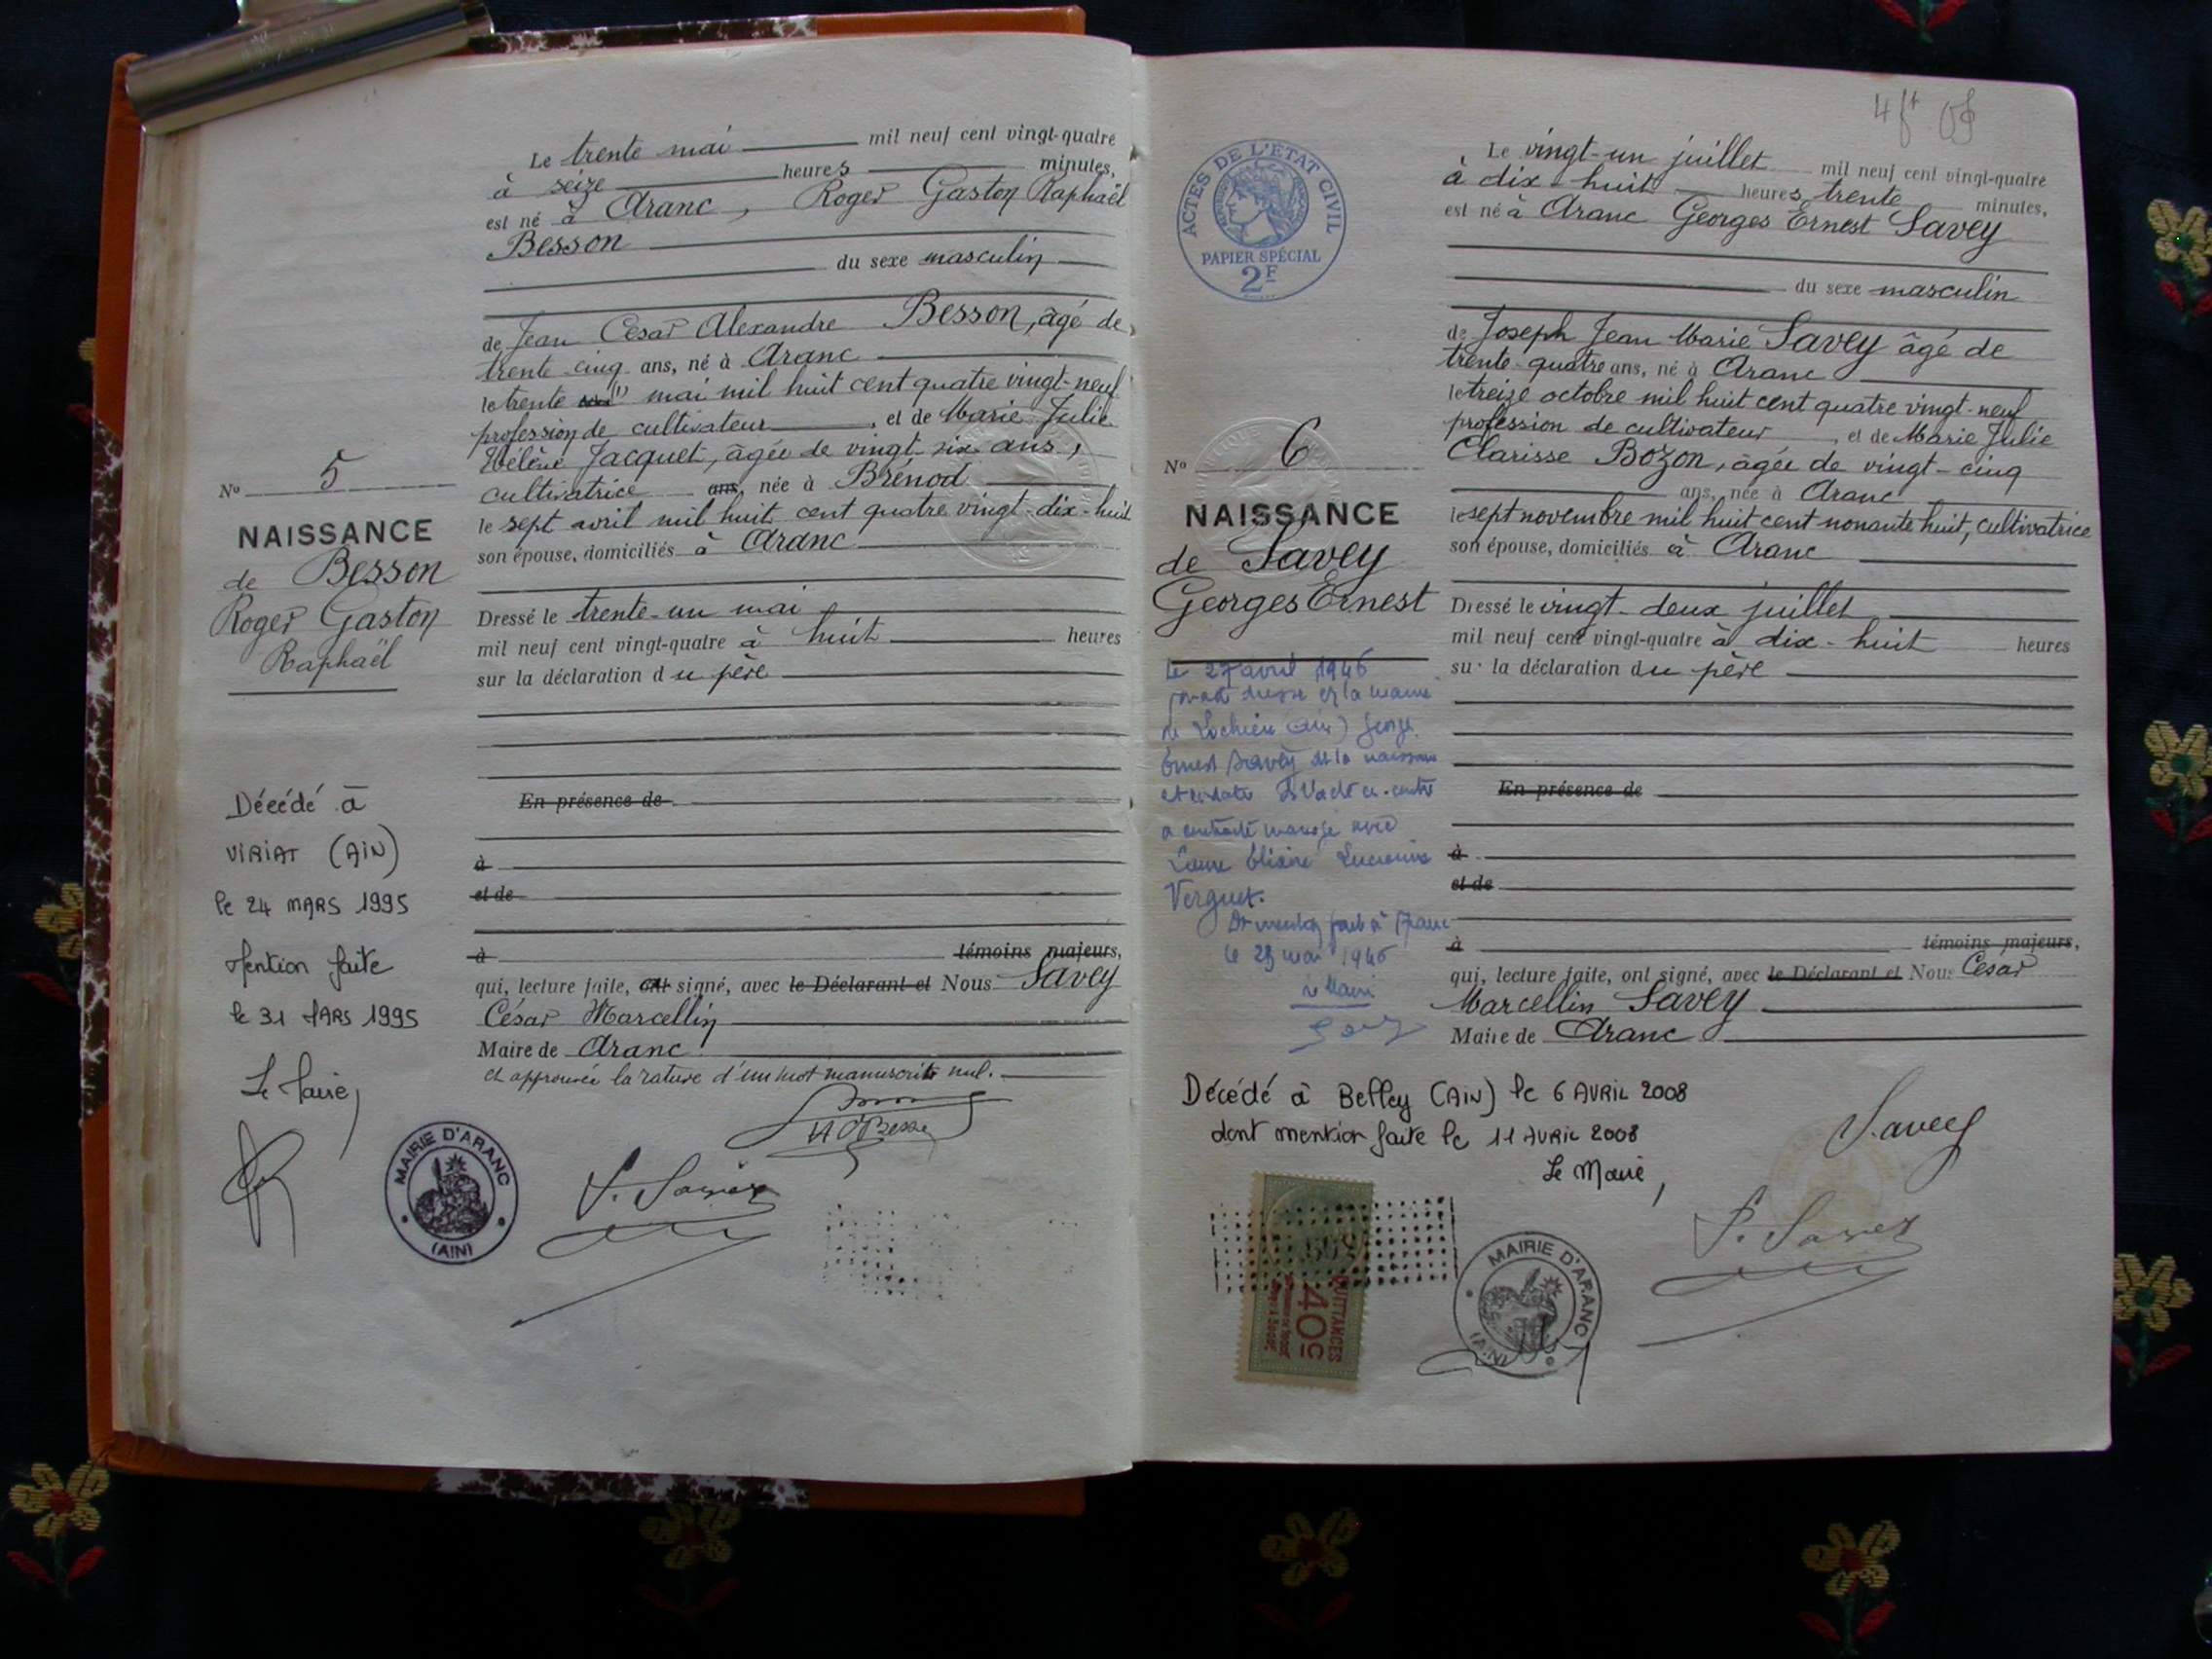 Le trente mai mil neuf cent vingt-quatre
à seize heures minutes,
est né à Aranc, Roger Gaston Raphaël
Besson
du sexe masculin
de Jean César Alexandre Besson, âgé de
trente-cinq ans, né à Aranc
le trente (1) mai mil huit cent quatre vingt-neuf
profession de cultivateur, et de Marie Julie
Hélène Jacquet, âgée de vingt-six ans,
cultivatrice ans, née à Brénod
le sept avril mil huit cent quatre vingt-dix-huit
son épouse, domiciliés à Aranc
Dressé le trente-un mai
mil neuf cent vingt-quatre à huit heures
sur la déclaration du père
En présence de
à
et de
à témoins majeurs,
qui, lecture faite, ont signé, avec le Déclarant et Nous Savey
César Marcellin
Maire de Aranc
et approuvée la rature d'un mot manuscrit nul.
No 5
NAISSANCE
de Besson
Roger Gaston
Raphaël
Décédé à
VIRIAT (AIN)
le 24 MARS 1995
Mention faite
le 31 MARS 1995
Le Maire,
MAIRIE D'ARANC
(AIN)
ACTES DE L'ETAT CIVIL
PAPIER SPÉCIAL
2F
Le vingt-un juillet mil neuf cent vingt-quatre
à dix-huit heures trente minutes,
est né à Aranc Georges Ernest Savey
du sexe masculin
de Joseph Jean Marie Savey âgé de
trente-quatre ans, né à Aranc
le treize octobre mil huit cent quatre vingt-neuf
profession de cultivateur, et de Marie Julie
Clarisse Bozon, âgée de vingt-cinq
ans, née à Aranc
le sept novembre mil huit cent nonante huit, cultivatrice
son épouse, domiciliés à Aranc
Dressé le vingt-deux juillet
mil neuf cent vingt-quatre à dix-huit heures
sur la déclaration du père
En présence de
à
et de
à témoins majeurs,
qui, lecture faite, ont signé, avec le Déclarant et Nous César
Marcellin Savey
Maire de Aranc
No 6
NAISSANCE
de Savey
Georges Ernest
Le 27 avril 1946
la mairie
de Lochieu (Ain) George
Ernest Savey de la naissance
a contracté mariage avec
Verguet.
Dt mention faite à Aranc
le 29 mai 1946
le Maire
Décédé à Belley (AIN) le 6 AVRIL 2008
dont mention faite le 11 AVRIL 2008
Le Maire,
Savey
QUITTANCES
40c
MAIRIE D'ARANC
(AIN)